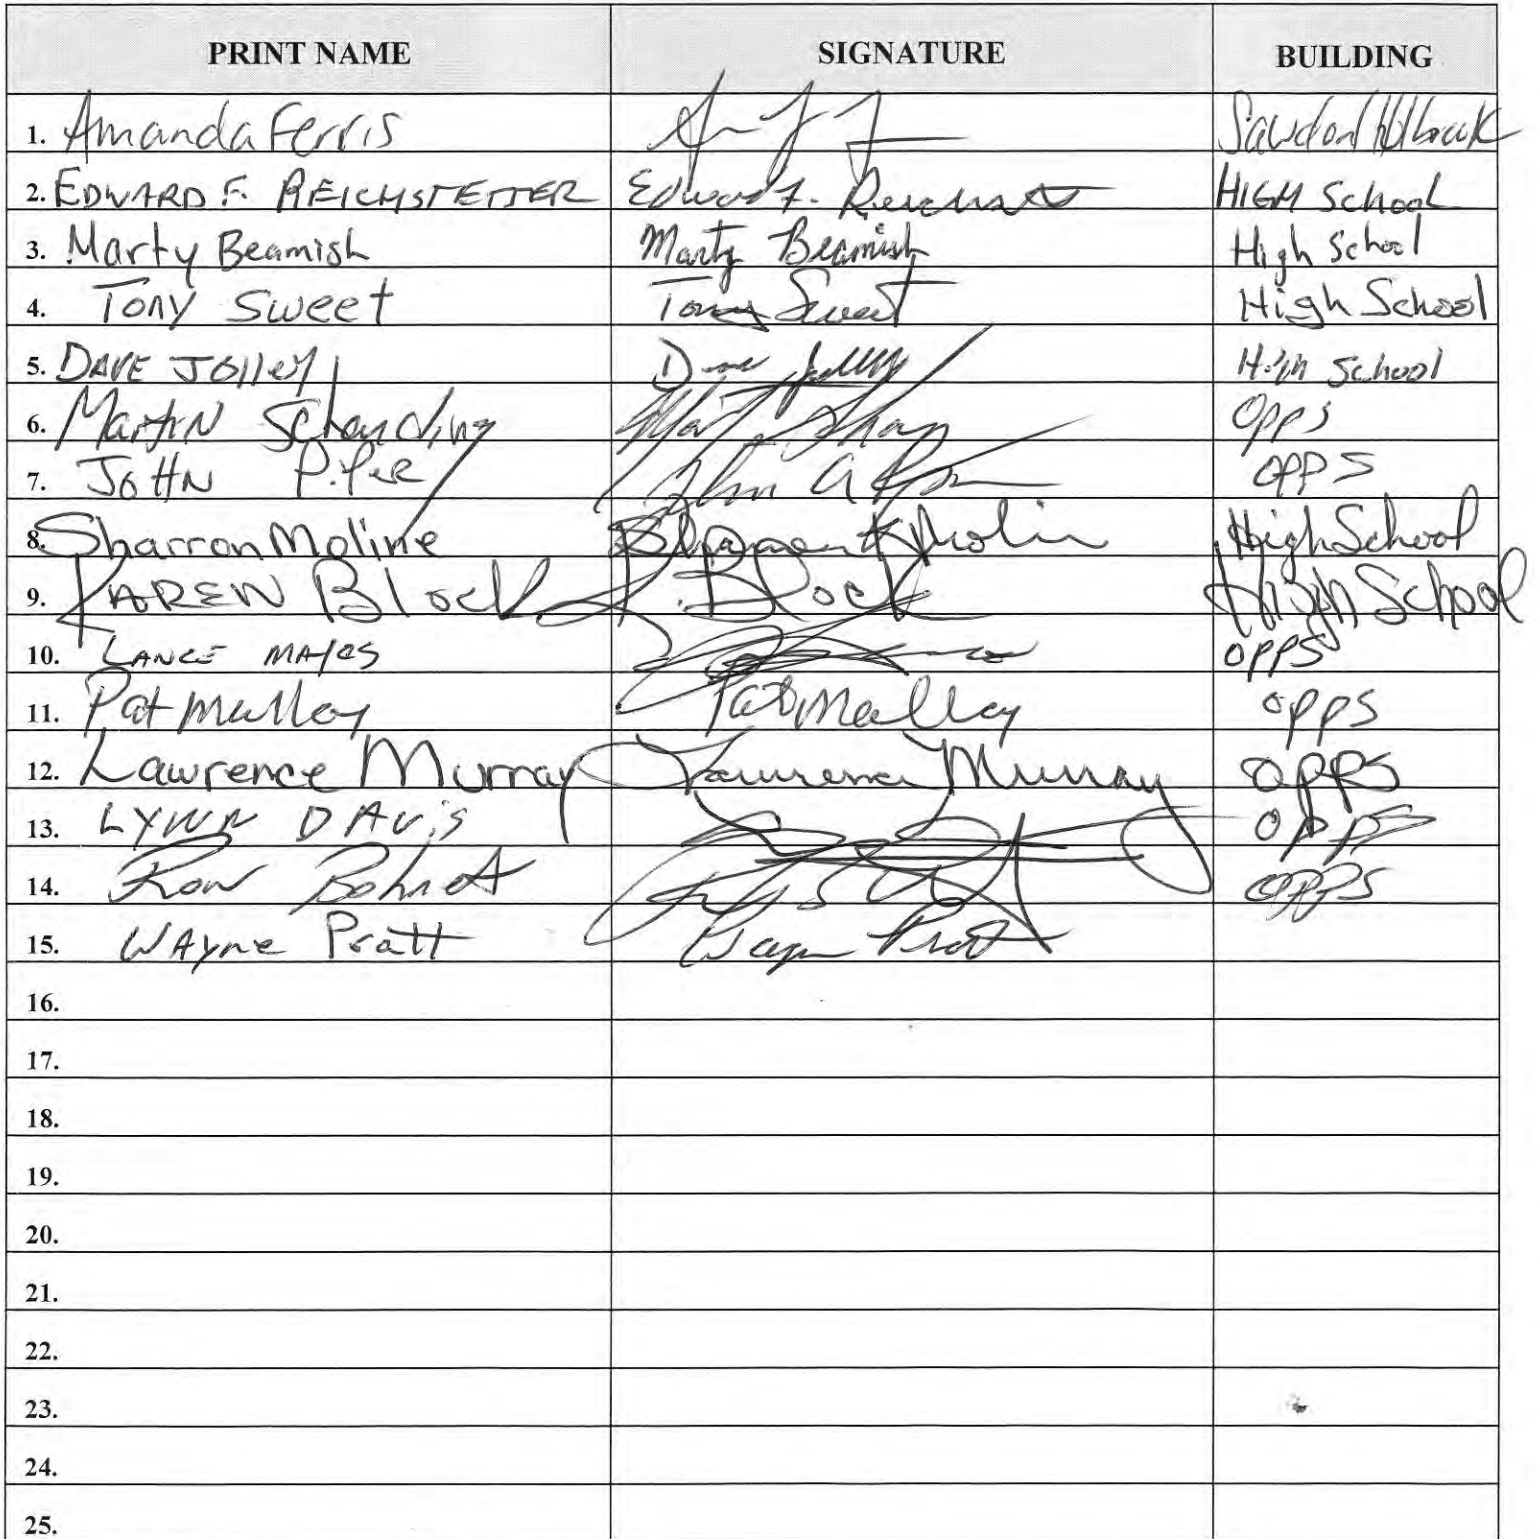 PRINT NAME SIGNATURE BUILDING
1. Amanda Ferris
2. EDWARD F. REICHSTETTER Edward F. HIGH School
3. Marty Beamish Marty Beamish High School
4. Tony Sweet Tony Sweet High School
5. DAVE JOlley Dave Jolley High School
6. MartiN Schanding OPPS
7. JOHN PiPeR John A OPPS
8. Sharron Moline High School
9. KAREN Block K. Block High School
10. LANCE MAyes OPPS
11. Pat Malloy Pat Malloy OPPS
12. Lawrence Murray Lawrence Murray OPPS
13. LYNN DAVis OPPS
14. Ron OPPS
15. WAyne Pratt Wayne Pratt
16.
17.
18.
19.
20.
21.
22.
23.
24.
25.